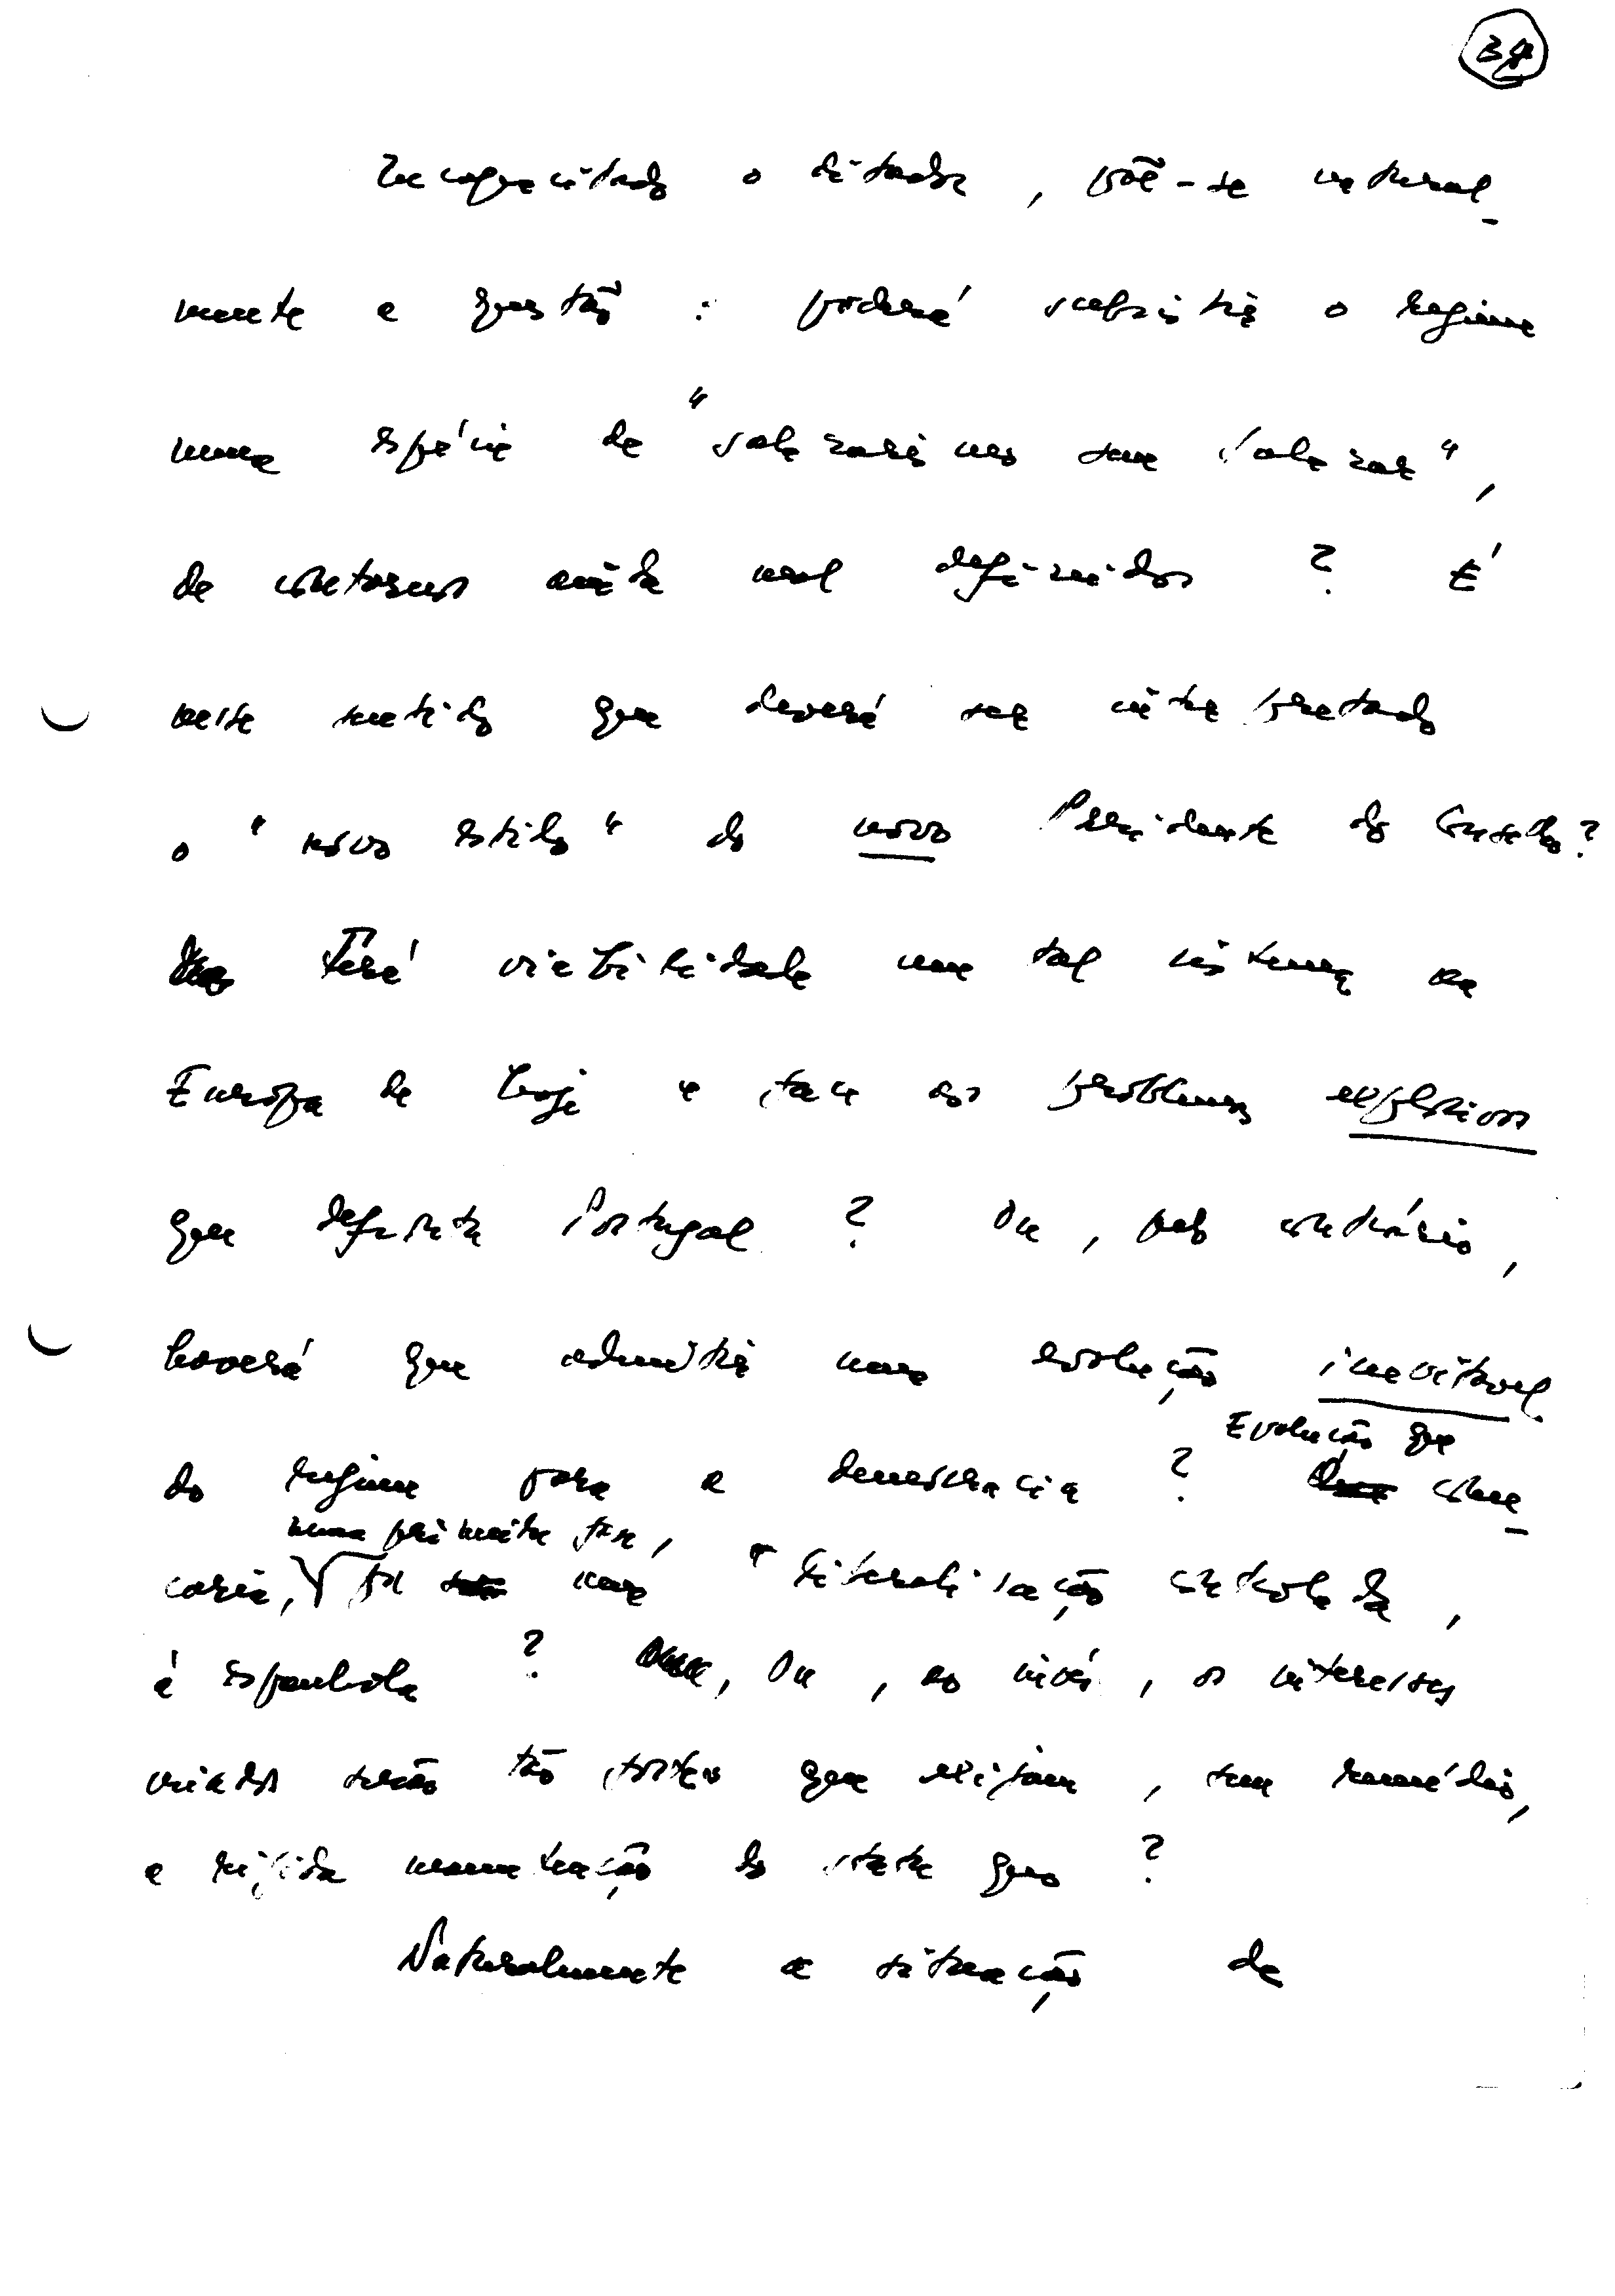 Incapacitado o ditador, põe-se natural-
mente a questão: poderá subsistir o regime
numa espécie de "salazarismo sem Salazar",
de contornos ainda mal definidos? É
neste sentido que deverá ser interpretado
o "novo estilo" do novo Presidente do Conselho?
Terá viabilidade um tal sistema na
Europa de hoje e face aos problemas explosivos
que defronta Portugal? Ou, pelo contrário,
haverá que admitir uma evolução inevitável
Evolução que
do regime para a democracia? come-
numa primeira fase,
caria, por uma "liberalização controlada,
à espanhola? Ou, ao invés, os interesses
criados serão tão fortes que exijam, sem remédio,
a rígida manutenção do statu quo?
Naturalmente a situação de